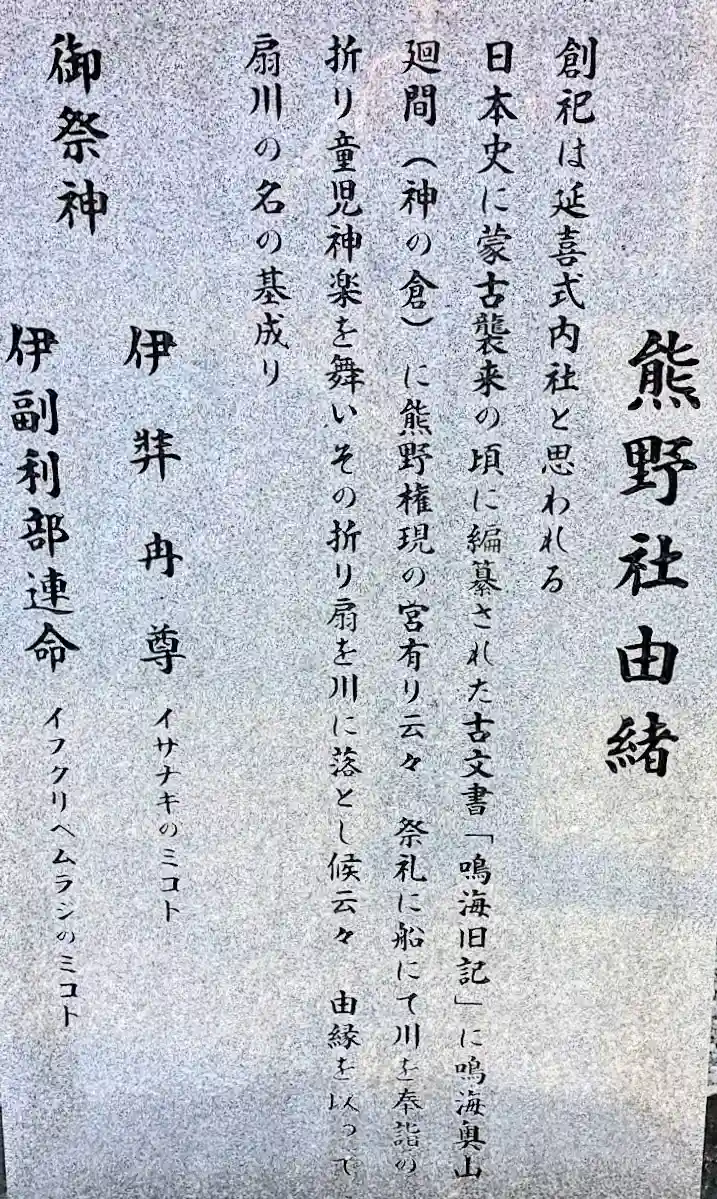 熊野社由緒
創祀は延喜式内社と思われる
日本史に蒙古襲来の頃に編纂された古文書「鳴海旧記」に鳴海奥山
廻間(神の倉)に熊野権現の宮有り云々 祭礼に船にて川を奉詣の
折り童児神楽を舞いその折り扇を川に落とし候云々 由縁を以って
扇川の名の基成り
御祭神
伊弉冉尊 イサナキのミコト
伊副利部連命 イフクリベムラジのミコト